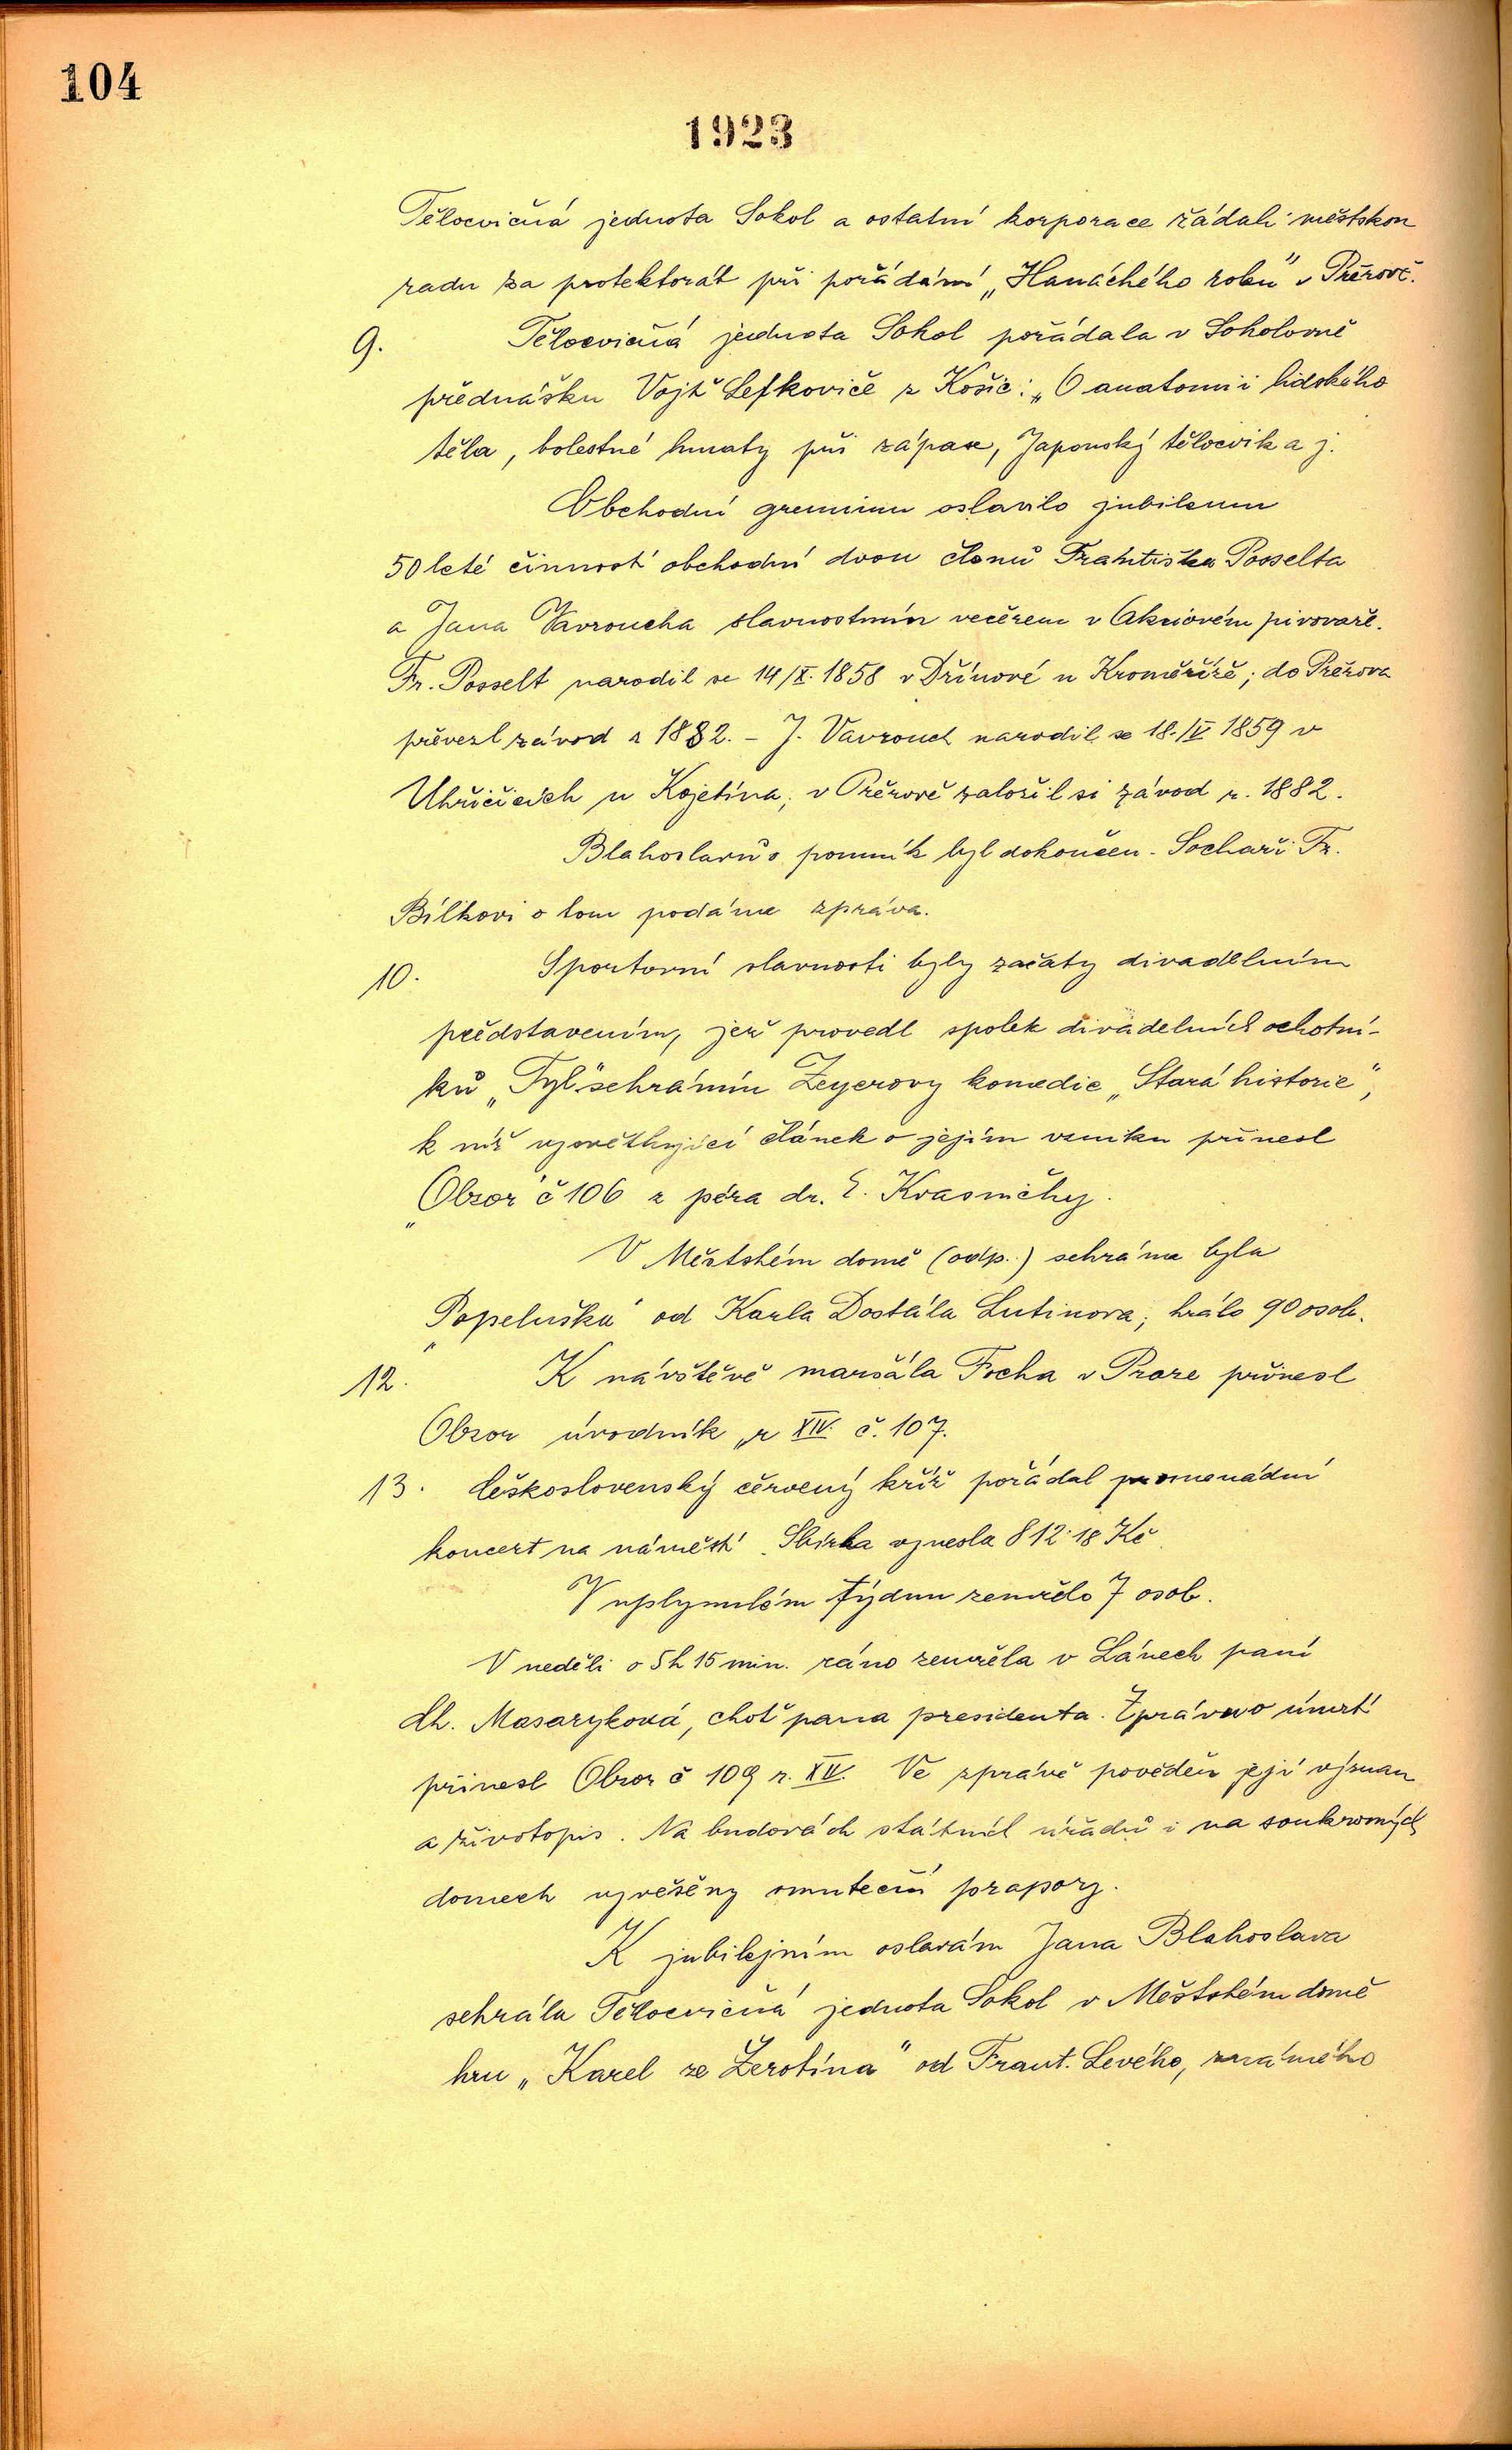 104
1923
Tělocvičná jednota Sokol a ostatní korporace žádali městskou
radu za protektorát při pořádání „Hanáckého roku" v Přerově.
9. Tělocvičná jednota Sokol pořádala v Sokolovně
přednášku Vojt. Lefkoviče z Košic: „O anatomii lidského
těla, bolestné hmaty při zápase, Japonský tělocvik a j.
Obchodní gremium oslavilo jubileum
50 leté činnosti obchodní dvou členů Františka Posselta
a Jana Vavroucha slavnostním večerem v Akciovém pivovaře.
Fr. Posselt narodil se 14/X. 1858 v Dřínové u Kroměříže; do Přerova
převezl závod r 1882. – J. Vavrouch narodil se 18./IV 1859 v
Uhřičicích u Kojetína; v Přerově založil si závod r. 1882.
Blahoslavův pomník byl dokončen. Sochaři Fr.
Bílkovi o tom podána zpráva.
10. Sportovní slavnosti byly začaty divadelním
představením, jež provedl spolek divadelních ochotní-
ků „Tyl" sehráním Zeyerovy komedie „Stará historie",
k níž vysvětlující článek o jejím vzniku přinesl
„Obzor" č 106 z péra dr. E. Krasničky.
V Městském domě (odp.) sehrána byla
„Popeluška" od Karla Dostála Lutinova; hrálo 90 osob.
12. K návštěvě maršála Focha v Praze přinesl
Obzor úvodník „r XIV. č. 107.
13. Československý červený kříž pořádal promenádní
koncert na náměstí. Sbírka vynesla 812·18 Kč
V uplynulém týdnu zemřelo 7 osob.
V neděli o 5h 15 min. ráno zemřela v Lánech paní
Ch. Masaryková, choť pana presidenta. Zprávu o úmrtí
přinesl Obzor č 109 r. XIV. Ve zprávě pověděn její význam
a životopis. Na budovách státních úřadů i na soukromých
domech vyvěšeny smuteční prapory.
K jubilejním oslavám Jana Blahoslava
sehrála Tělocvičná jednota Sokol v Městském domě
hru „Karel ze Žerotína" od Frant. Levého, známého